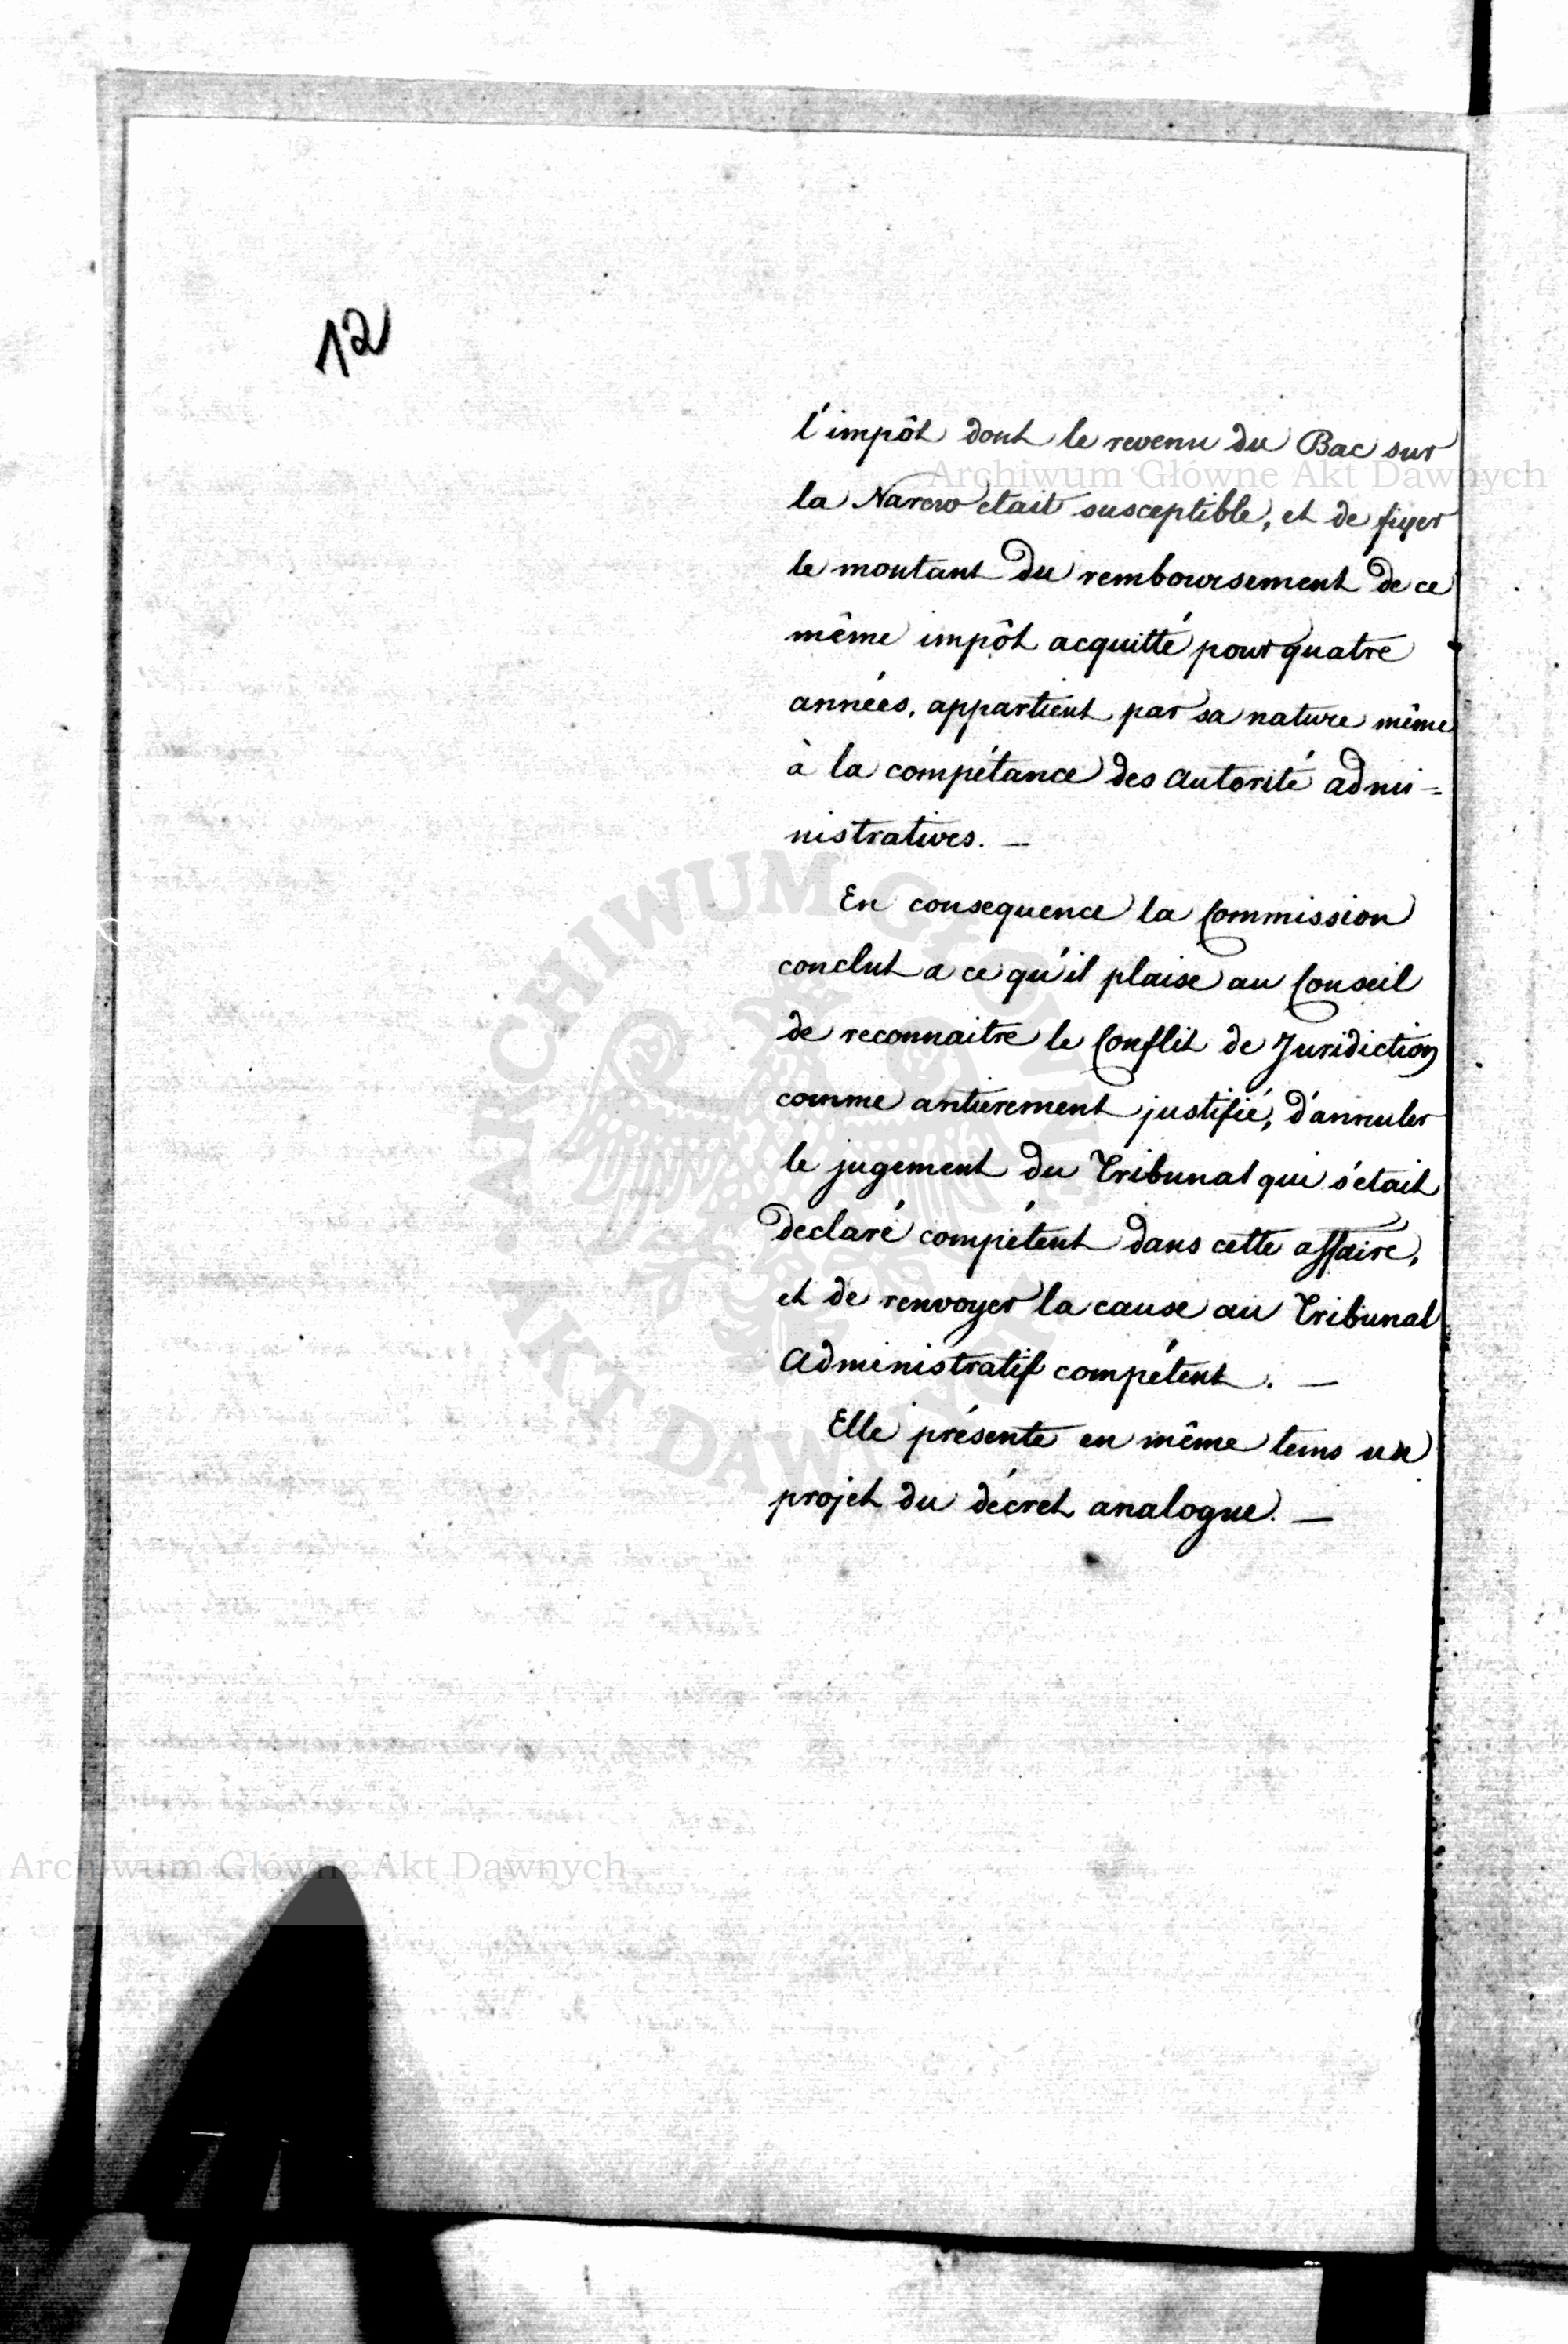 12
l'impôt dont le revenu du Bac sur
Archiwum Główne Akt Dawnych
la Narew etait susceptible, et de fixer
le montant du remboursement de ce
même impôt acquitté pour quatre
années, appartient par sa nature même
à la compétance des autorité admi=
nistratives. —
En consequence la Commission
conclut a ce qu'il plaise au Conseil
de reconnaitre le Conflit de Juridiction
comme antierement justifié, d'annuler
le jugement du Tribunal qui s'était
declaré compétent dans cette affaire,
et de renvoyer la cause au Tribunal
Administratif compétent. —
Elle présente en même tems un
projet du décret analogue. —
ARCHIWUM GŁÓWNE AKT DAWNYCH
Archiwum Główne Akt Dawnych